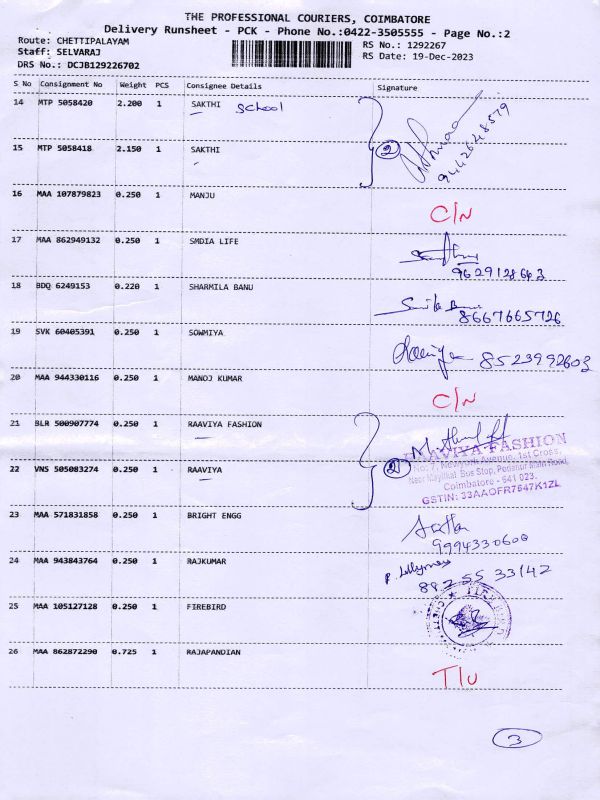 THE PROFESSIONAL COURIERS, COIMBATORE
Delivery Runsheet - PCK - Phone No.:0422-3505555 - Page No.:2
Route: CHETTIPALAYAM
Staff: SELVARAJ
DRS No.: DCJB129226702
RS No.: 1292267
RS Date: 19-Dec-2023
S No Consignment No Weight PCS Consignee Details Signature
14 MTP 5058420 2.200 1 SAKTHI School
2 9442648579
15 MTP 5058418 2.150 1 SAKTHI
16 MAA 107879823 0.250 1 MANJU C/N
17 MAA 862949132 0.250 1 SMDIA LIFE
9629128663
18 BDQ 6249153 0.220 1 SHARMILA BANU
8667665726
19 SVK 60405391 0.250 1 SOWMIYA
8523992603
20 MAA 944330116 0.250 1 MANOJ KUMAR C/N
21 BLR 500907774 0.250 1 RAAVIYA FASHION
RAAVIYA FASHION
1st Cross,
22 VNS 505083274 0.250 1 RAAVIYA 2
Bus Stop, Main Road,
Coimbatore - 641 023.
GSTIN: 33AAOFR7647K1ZL
23 MAA 571831858 0.250 1 BRIGHT ENGG
9994330600
24 MAA 943843764 0.250 1 RAJKUMAR
89255 33142
25 MAA 105127128 0.250 1 FIREBIRD
FIRE BIRD
26 MAA 862872290 0.725 1 RAJAPANDIAN T/U
3